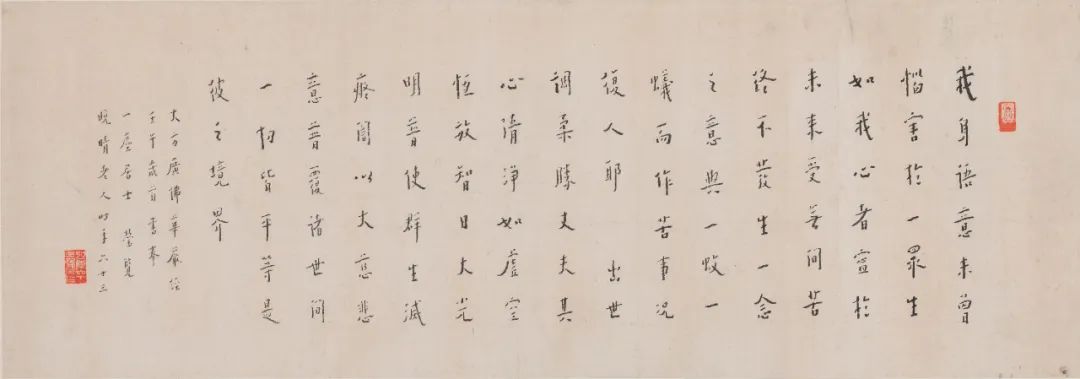 我身語意未曾
惱害於一眾生
如我心者寧於
未來受無間苦
終不發生一念
之意與一蚊一
蟻而作苦事況
復人耶 出世
調柔勝丈夫其
心清淨如虛空
恒放智日大光
明普使群生滅
癡闇以大慈悲
意普覆諸世間
一切皆平等是
彼之境界
大方廣佛華嚴經
壬午歲首書奉
一塵居士
晚晴老人時年六十三